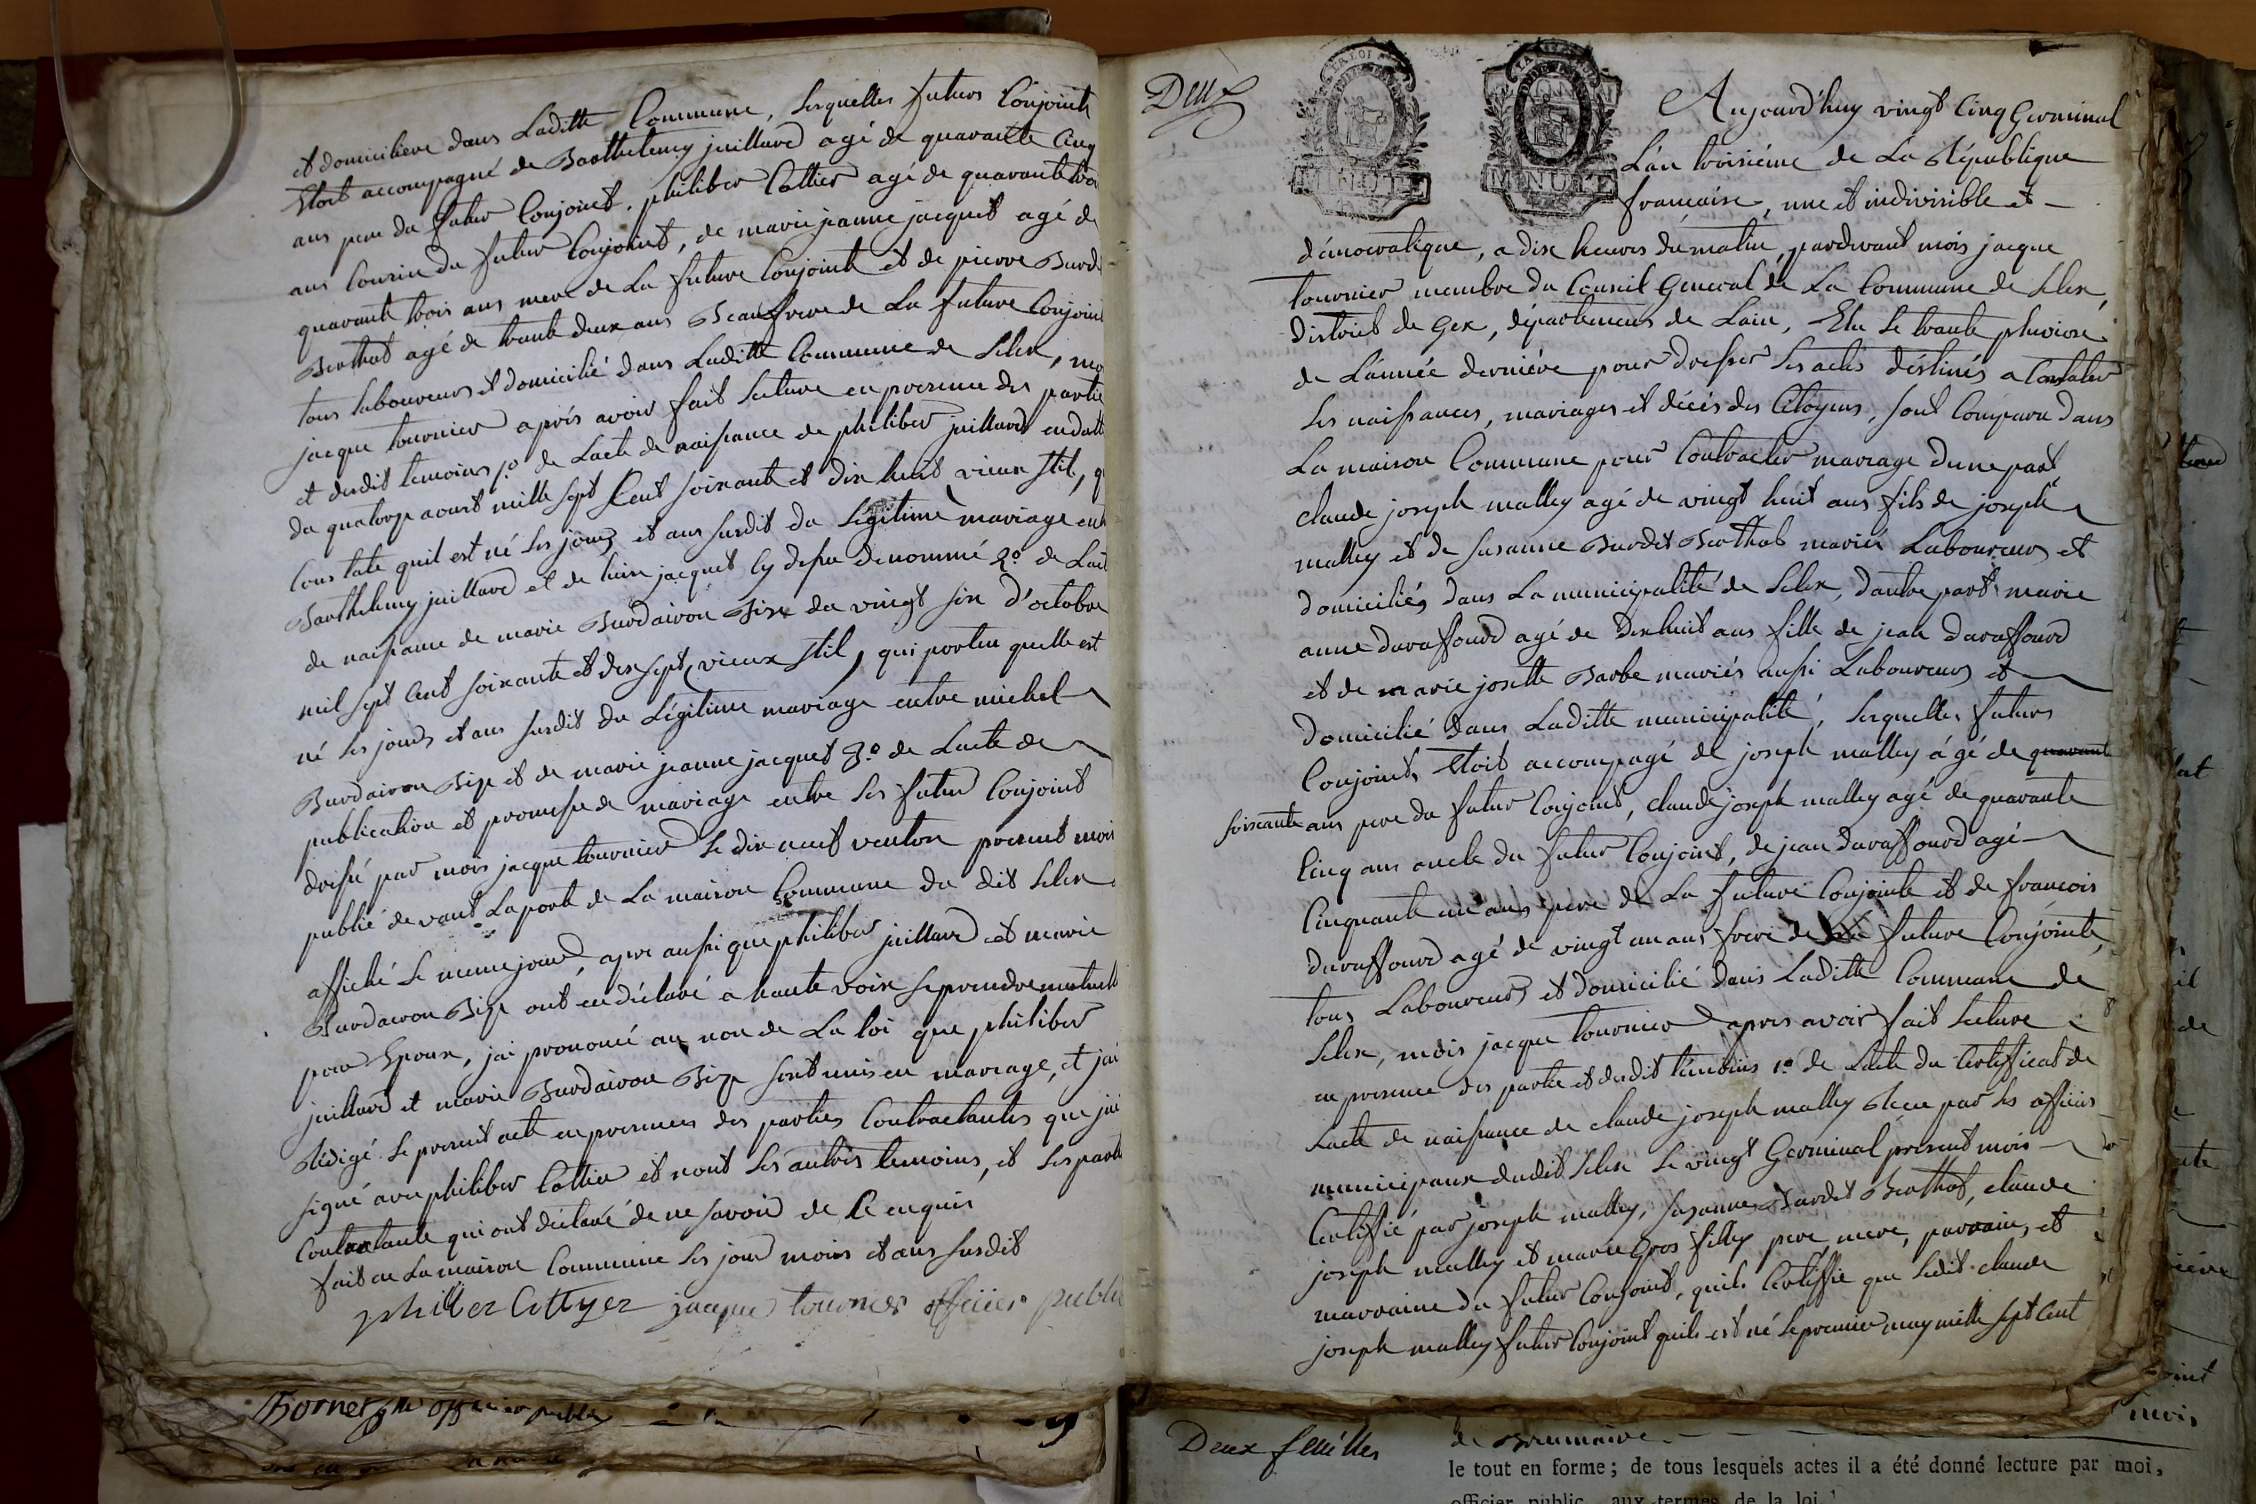 et domiciliere dans Laditte Commune, Lesquelles futurs Conjoints
Etoit accompagné de Barthelemy juillard agé de quarante Cinq
ans pere du futur Conjoint, philiber Cottier agé de quarante
ans Cousin du futur Conjoint, de marie jeanne jacquet agé de
quarante trois ans mere de La future Conjointe et de pierre Burdet
Berthot agé de trante deux ans Beaufrere de La future Conjointe
tous Laboureurs et domicilié dans Laditte Commune de Lelex, moi
jacque tournier aprés avoir fait Lecture en presence des partie
et desdit temoins 1º de Lacte de naissance de philiber juillard en datte
du quatorze aoust mille sept Cent soixante et dix huit vieux stil, qui
Constate quil est né Les jour et ans susdit du Légitime mariage entre
Barthelemy juillard et de jacquet Cy dessu denommé 2º de Lacte
de naissance de marie Burdairon Bize du vingt six d'octobre
mil sept Cent soixante et dix sept vieux stil, qui porte quelle est
né Les jours et ans susdit du Légitime mariage entre michel
Burdairon Bize et de marie jeanne jacquet 3º de Lacte de
publication et promesse de mariage entre Les futur Conjoint
dressé par mois jacque tournier Le dix neuf ventos present mois
publié devant La porte de La maison Commune du dit Lelex
affiché Le meme jour, apre aussi que philiber juillard et marie
Burdairon Bize ont eu déclaré a haute voix se prendre mutuelle
pour Epoux, jai prononcé au non de La loi que philiber
juillard et marie Burdairon Bize sont unis en mariage, et jai
Rédigé Le present acte en presences des parties Contractantes que jai
signé avec philiber Cottier et nont Les autres temoins, et Les partie
Contractante qui ont déclaré de ne savoir de Ce enquis
fait en La maison Commune Les jour mois et ans susdit
philiber Cottyer jacque tournier officier public
officier public
Deux
MINUTE
MINUTE
Aujourd'huy vingt Cinq Germinal
L'an troisiéme de La République
francaise, une et indivisible et
démocratique, a dix heures du matin, pardevant mois jacque
tournier membre du Conseil General de La Commune de Lelex,
district de Gex, département de Lain, Elu Le trante pluviose
de L'année derniére pour dresser Les actes déstinés a Constater
Les naissances, mariages et décés des Citoyens, sont Comparu dans
La maison Commune pour Contracter mariage dune part,
claude joseph malley agé de vingt huit ans fils de joseph
malley et de susanne Burdet Berthot mariés Laboureurs et
domiciliés dans La municipalité de Lelex, dautre part marie
anne duraffourd agé de dix huit ans fille de jean duraffourd
et de marie josette Barbe mariés aussi Laboureurs et
domicilié dans Laditte municipalité, Lesquelles futurs
Conjoints Etoit accompagé de joseph malley ágé de quarante
soixante ans pere du futur Conjoint, claude joseph malley agé de quarante
Cinq ans oncle du futur Conjoint, de jean duraffourd agé
Cinquante un ans pere de La future Conjointe et de francois
duraffourd agé de vingt un ans frere de La future Conjointe,
tous Laboureurs et domicilié dans Laditte Commune de
Lelex, mois jacque tournier apres avoir fait Lecture
en presence des partie et desdit témoins 1º de Lacte du Certifficat de
Lacte de naissance de claude joseph malley Recu par les officiers
municipaux dudit Lelex Le vingt Germinal présent mois
Certiffié par joseph malley, suzanne Burdet Berthot, claude
joseph malley et marie Gros filley pere, mere, parrain, et
marraine du futur Conjoint, quils Certiffie que Ledit claude
joseph malley futur Conjoint quils est né Le premier may mille sept Cent
mois
Deux feuilles
de Brumaire
le tout en forme; de tous lesquels actes il a été donné lecture par moi,
officier public, aux termes de la loi